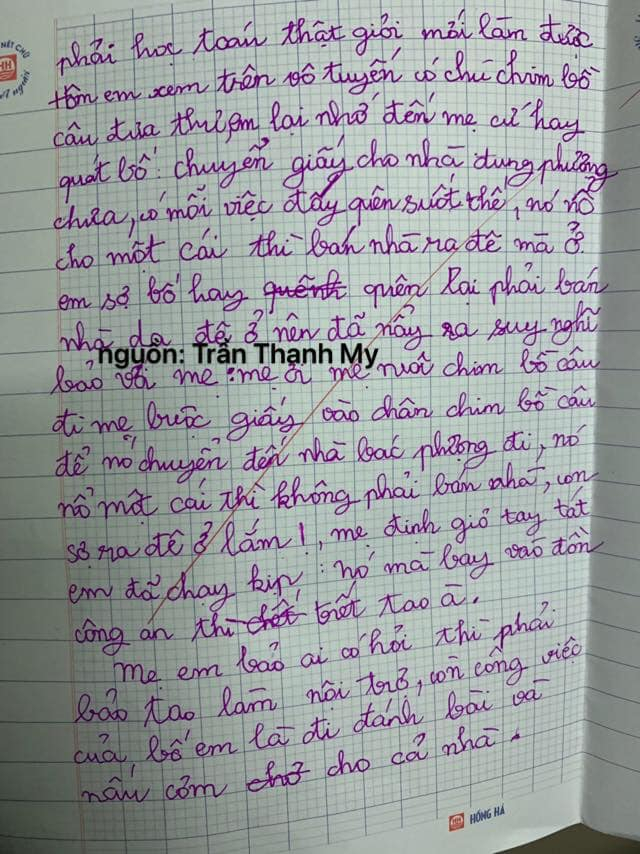 NÉT CHỮ
HH
NẾT NGƯỜI
phải học toán thật giỏi mới làm được
tôm em xem trên vô tuyến có chú chim bồ
câu đưa thư, em lại nhớ đến mẹ cứ hay
quát bố: chuyển giấy cho nhà dung phượng
chưa, có mỗi việc đấy quên suốt thế, nó nổ
cho một cái thì bán nhà ra đê mà ở.
em sợ bố hay quên lại phải bán
nhà da đê ở nên đã nẩy ra suy nghĩ
nguồn: Trần Thạnh My
bảo với mẹ: mẹ ơi mẹ nuôi chim bồ câu
đi mẹ buộc giấy vào chân chim bồ câu
để nó chuyển đến nhà bác phượng đi, nó
nổ một cái thì không phải bán nhà, con
sợ ra đê ở lắm!, mẹ định giơ tay tát
em đã chạy kịp: nó mà bay vào đồn
công an thì chết trết tao à.
Mẹ em bảo ai có hỏi thì phải
bảo tao làm nội trợ, còn công việc
của bố em là đi đánh bài và
nấu cơm cho cả nhà.
HH HỒNG HÀ